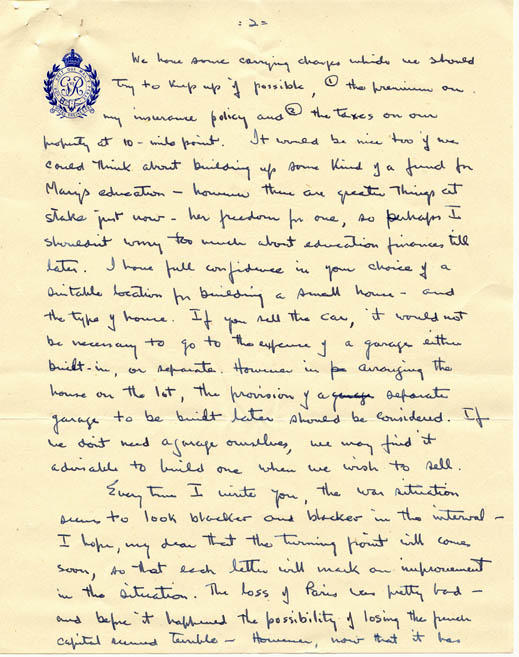 : 2 =
We have some carrying charges which we should
try to keep up if possible, ① the premium on
my insurance policy and ② the taxes on our
property at 10-mile point. It would be nice too if we
could think about building up some kind of a fund for
Mary's education - however there are greater things at
stake just now - her freedom for one, so perhaps I
shouldn't worry too much about education finances till
later. I have full confidence in your choice of a
suitable location for building a small house - and
the type of house. If you sell the car, it would not
be necessary to go to the expense of a garage either
built-in, or separate. However in arranging the
house on the lot, the provision of a separate
garage to be built later should be considered. If
we don't need a garage ourselves, we may find it
advisable to build one when we wish to sell.
Every time I write you, the war situation
seems to look blacker and blacker in the interval -
I hope, my dear that the turning point will come
soon, so that each letter will mark an improvement
in the situation. The loss of Paris was pretty bad -
and before it happened the possibility of losing the french
capital seemed terrible - However, now that it has